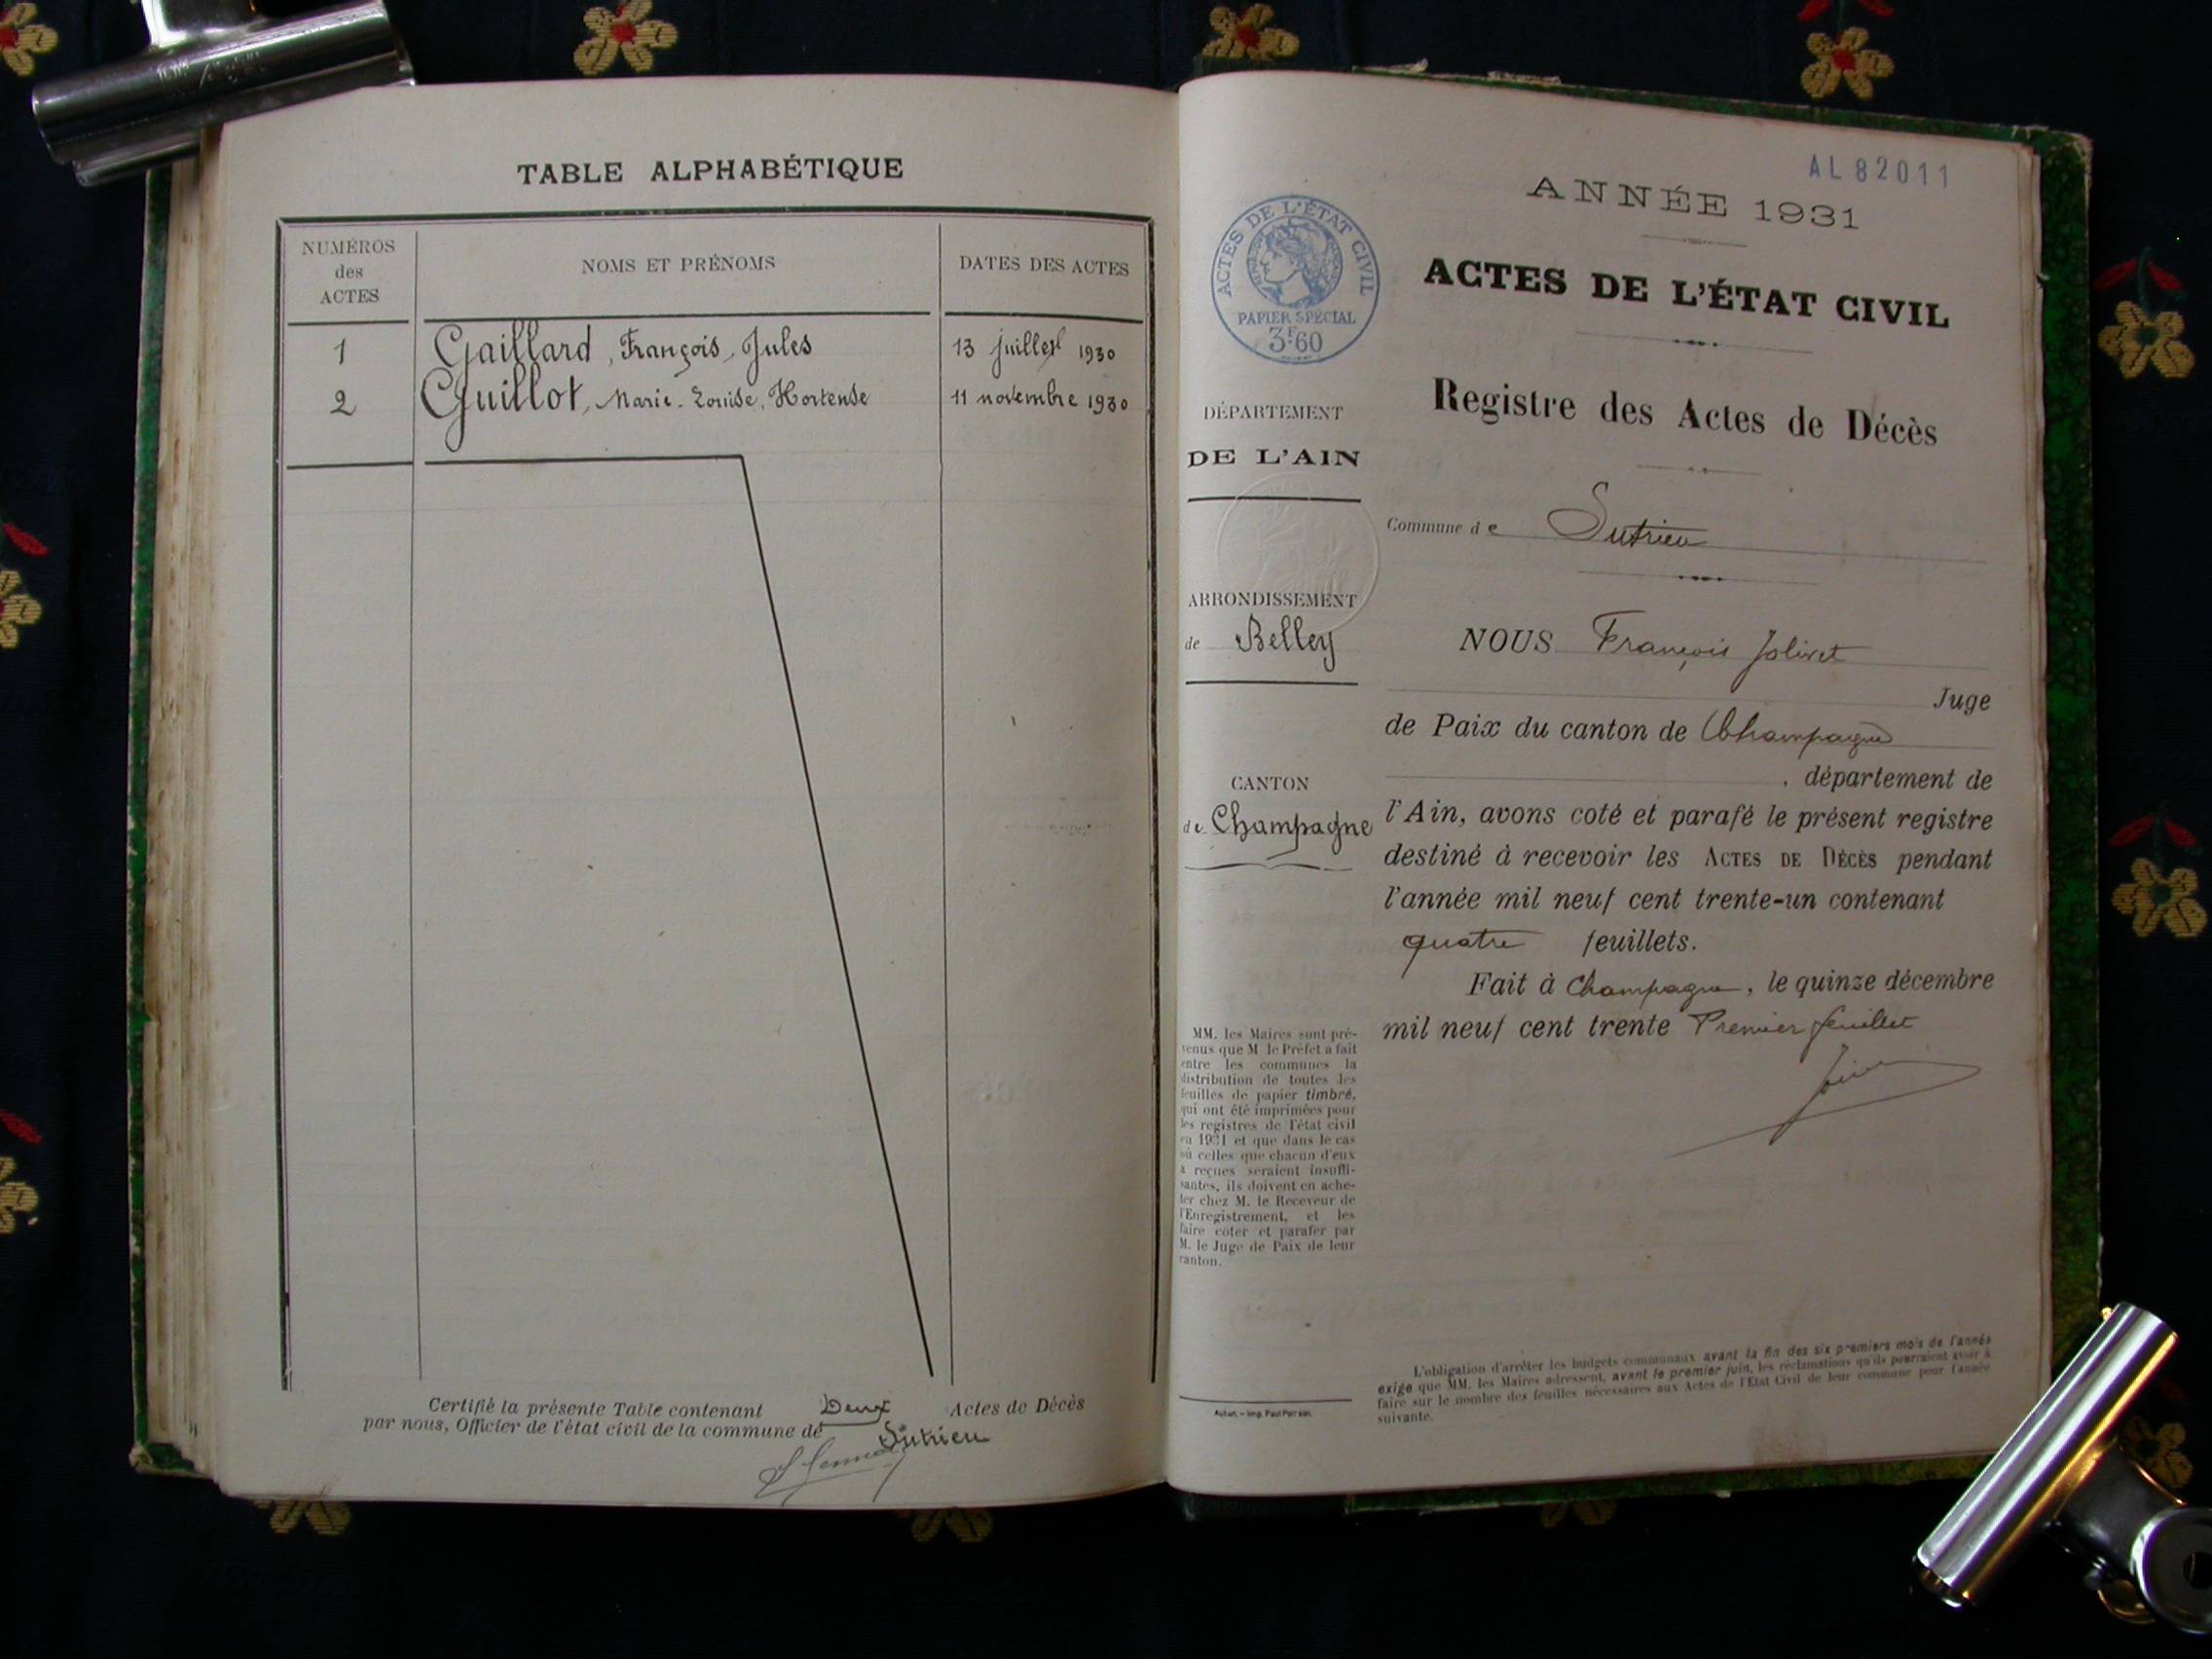 TABLE ALPHABÉTIQUE
NUMÉROS
des
ACTES
NOMS ET PRÉNOMS
DATES DES ACTES
1 Gaillard, François, Jules 13 juillet 1930
2 Guillot, Marie-Louise, Hortense 11 novembre 1930
Certifié la présente Table contenant Deux Actes de Décès
par nous, Officier de l'état civil de la commune de Sutrieu
AL 82011
ANNÉE 1931
ACTES DE L'ÉTAT CIVIL
PAPIER SPÉCIAL
3F60
ACTES DE L'ÉTAT CIVIL
Registre des Actes de Décès
DÉPARTEMENT
DE L'AIN
Commune de Sutrieu
ARRONDISSEMENT
de Belley
NOUS François Jolivet
Juge
de Paix du canton de Champagne
CANTON
de Champagne
, département de
l'Ain, avons coté et parafé le présent registre
destiné à recevoir les ACTES DE DÉCÈS pendant
l'année mil neuf cent trente-un contenant
quatre feuillets.
Fait à Champagne, le quinze décembre
mil neuf cent trente Premier feuillet
MM. les Maires sont pré-
venus que M le Préfet a fait
entre les communes la
distribution de toutes les
feuilles de papier timbré,
qui ont été imprimées pour
les registres de l'état civil
en 1931 et que dans le cas
où celles que chacun d'eux
a reçues seraient insuffi-
santes, ils doivent en ache-
ter chez M. le Receveur de
l'Enregistrement, et les
faire coter et parafer par
M. le Juge de Paix de leur
canton.
L'obligation d'arrêter les budgets communaux avant la fin des six premiers mois de l'année
exige que MM. les Maires adressent, avant le premier juin, les réclamations qu'ils pourraient avoir à
faire sur le nombre des feuilles nécessaires aux Actes de l'Etat Civil de leur commune pour l'année
suivante.